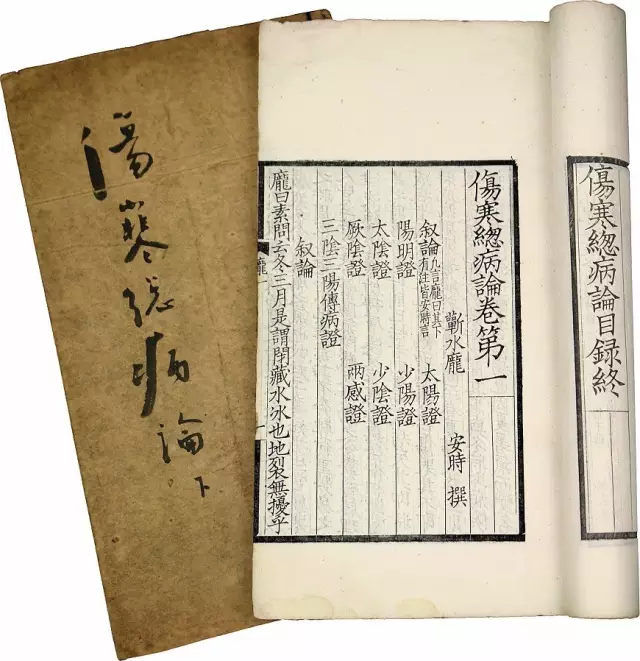 傷寒緫病論目録終
傷寒緫病論卷第一
蘄水龐 安時 撰
叙論 凡言龐曰其下有注皆安時言 太陽證
陽明證 少陽證
太陰證 少陰證
厥陰證 兩感證
三陰三陽傳病證
叙論
龐曰素問云冬三月是謂閉藏水冰也地裂無擾乎
龐一
傷寒總病論下